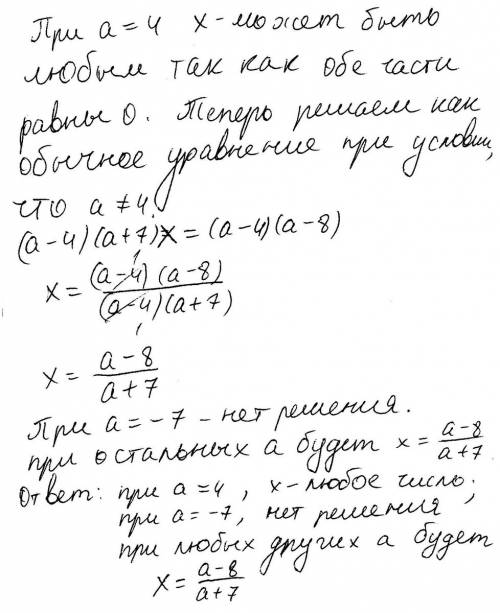 При a = 4 x - может быть
любым так как обе части
равны 0. Теперь решаем как
обычное уравнение при условии,
что a ≠ 4.
(a-4)(a+7)x = (a-4)(a-8)
x = (a-4)(a-8) / (a-4)(a+7)
x = a-8 / a+7
При a = -7 - нет решения.
при остальных a будет x = a-8 / a+7
Ответ: при a = 4, x - любое число;
при a = -7, нет решения;
при любых других a будет
x = a-8 / a+7